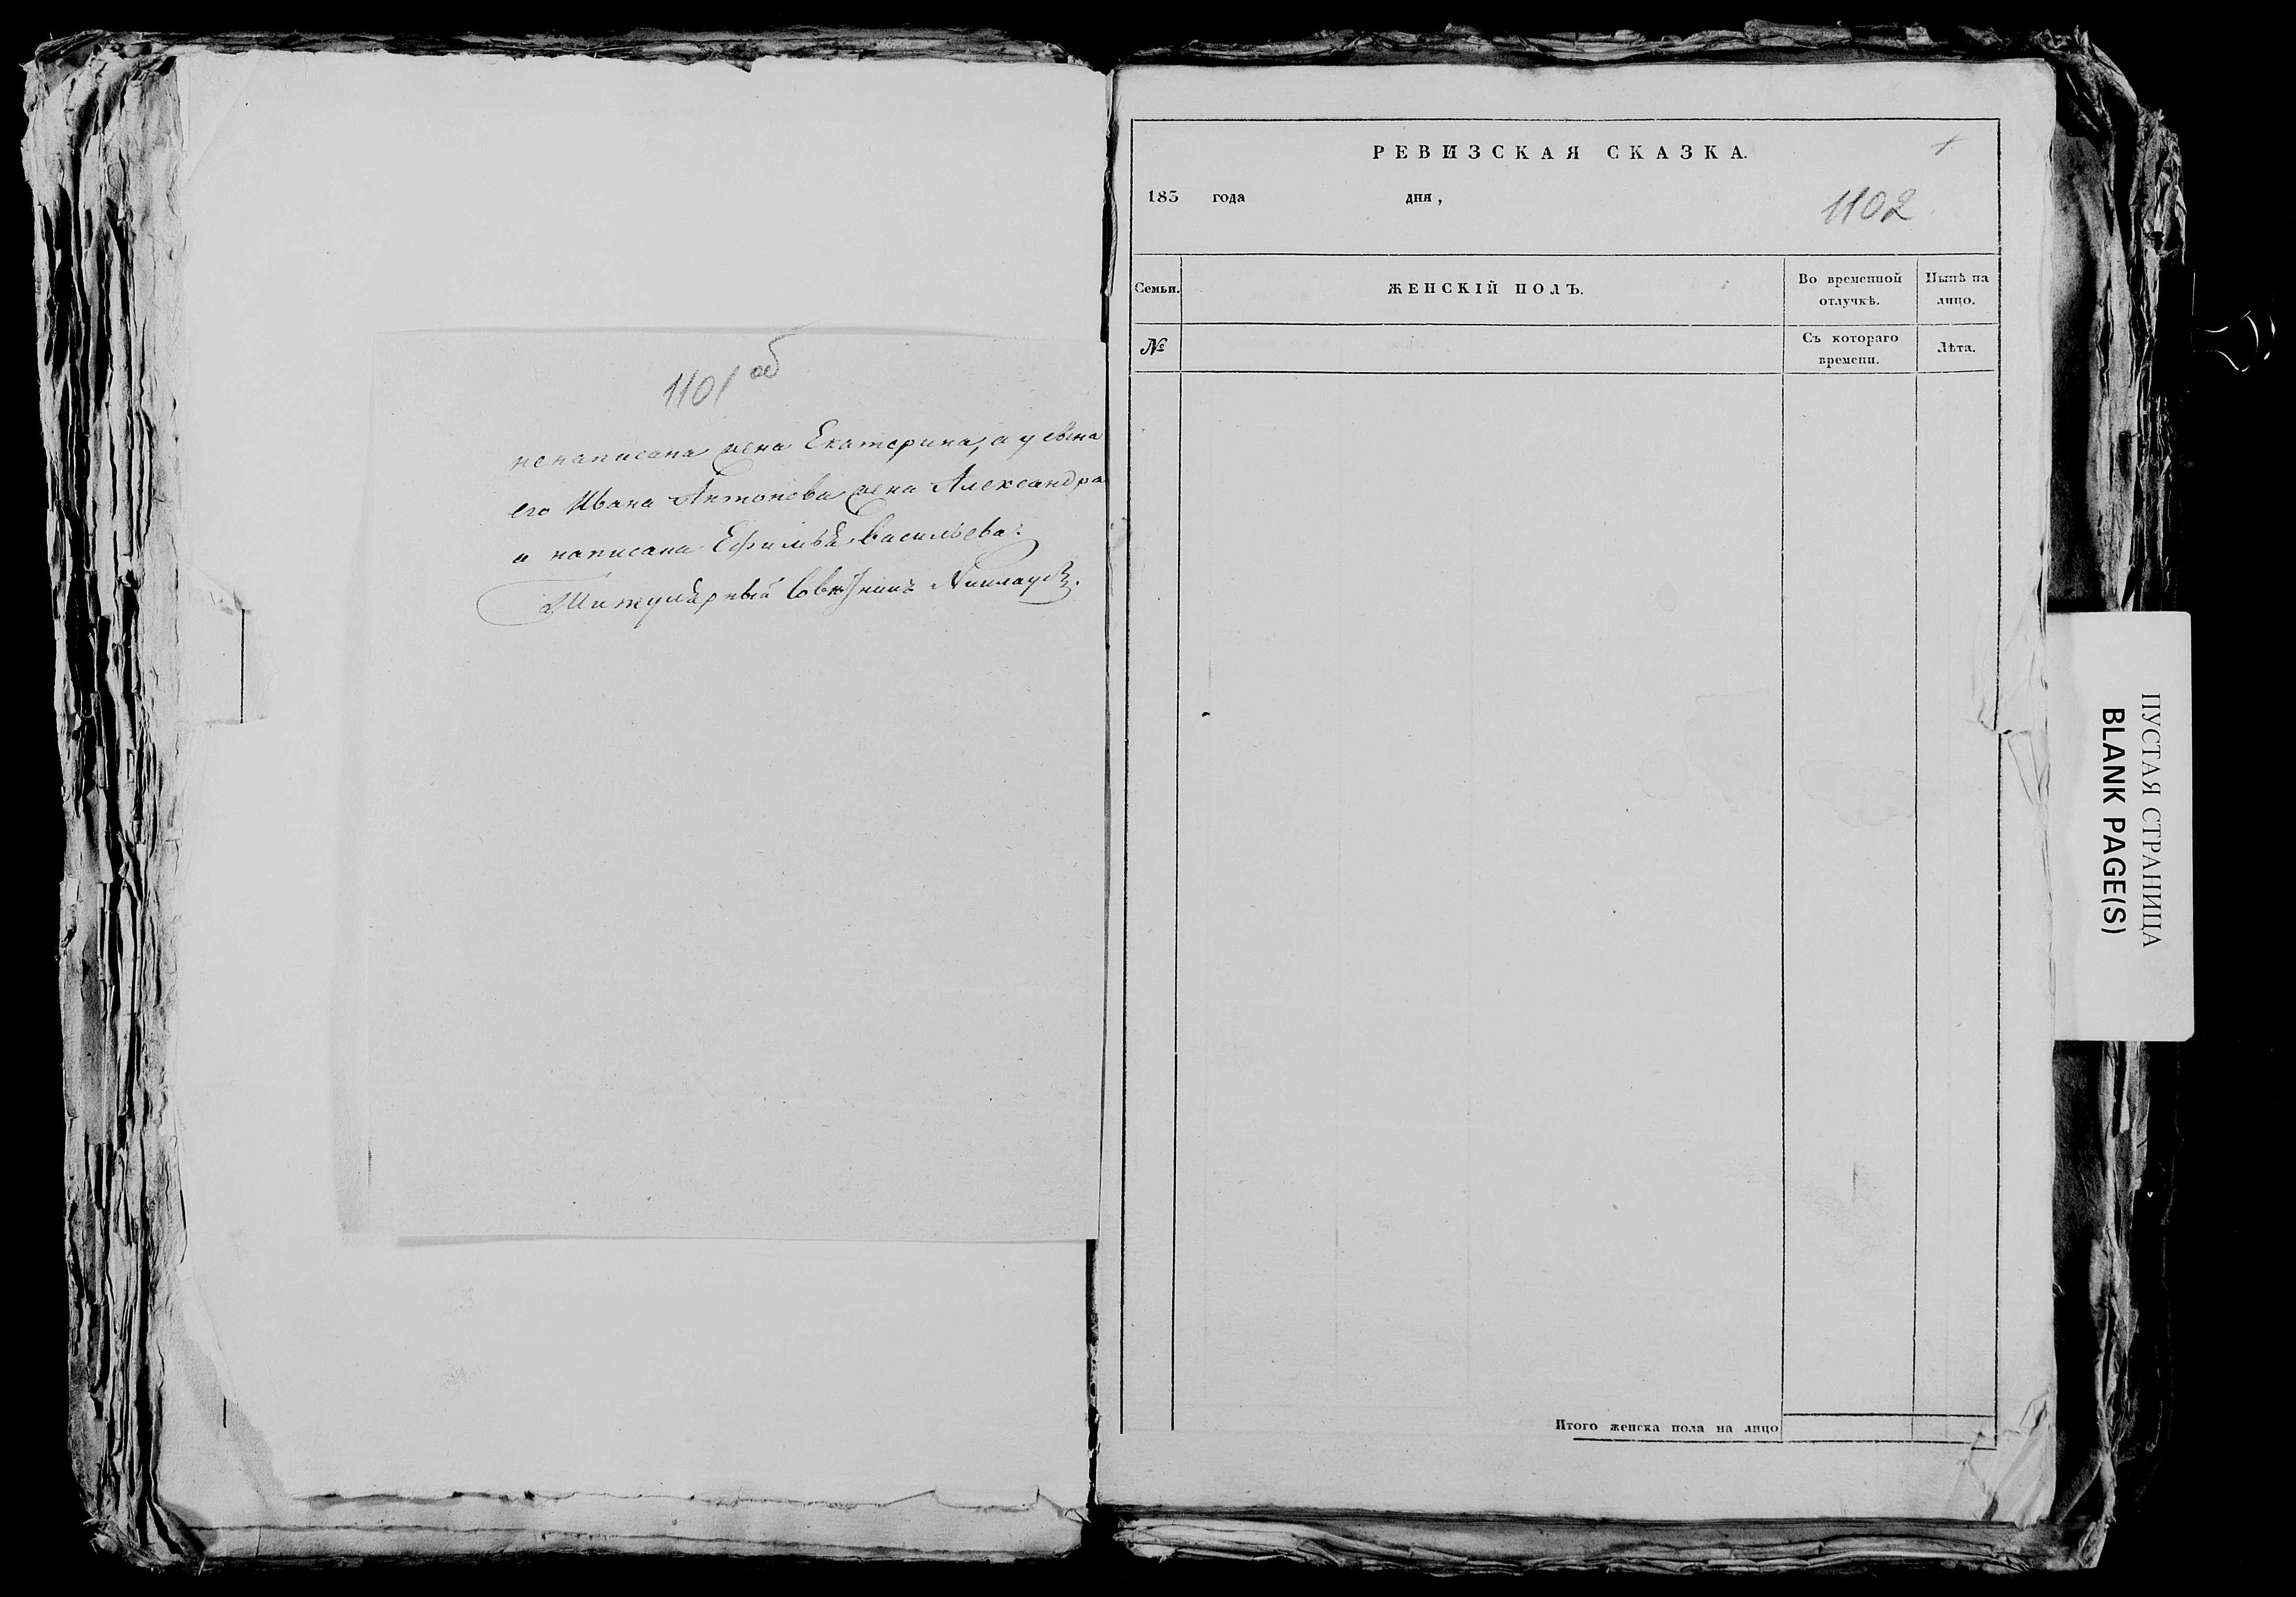 1101 об
не написана жена Екатерина, а у сына
его Ивана Антонова жена Александра
и написана Ефимья Васильева.
Титулярный Совѣтникъ
РЕВИЗСКАЯ СКАЗКА.
185 года дня,
1102
Семьи. ЖЕНСКІЙ ПОЛЪ. Во временной отлучкѣ. Нынѣ на лицо.
№ Съ котораго времени. Лѣта.
Итого женска пола на лицо
ПУСТАЯ СТРАНИЦА
BLANK PAGE(S)